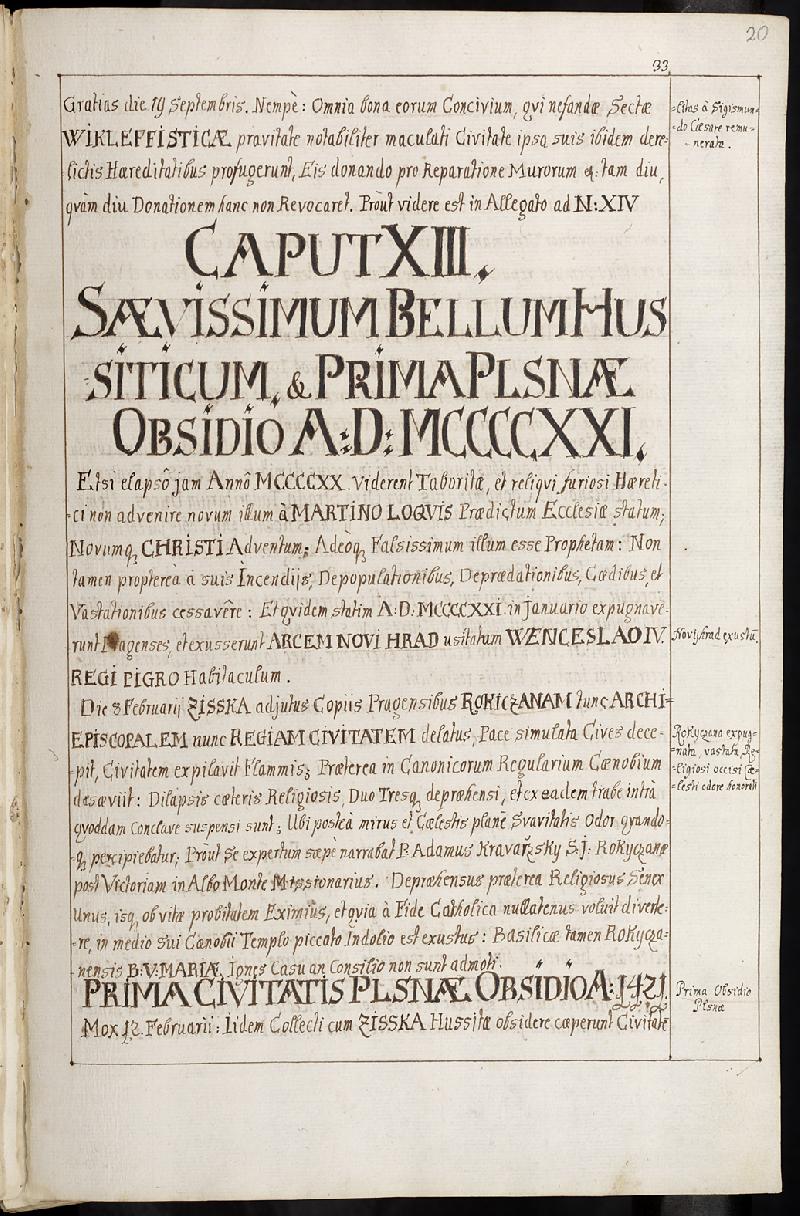 20
33
Gratias die 19 Septembris. Nempè: Omnia bona eorum Concivium, qvi nefandæ Sectæ
WIKLEFFISTICÆ pravitate notabiliter maculati Civitate ipsa suis ibidem dere-
lictis Hæreditatibus profugerunt, Eis donando pro Reparatione Murorum &: tam diu,
qvàm diu Donationem hanc non Revocaret. Prout videre est in Allegato ad N: XIV
-litas à Sigismun-
-do Cæsare remu-
-nerata.
CAPUT XIII.
SÆVISSIMUM BELLUM HUS
SITICUM, & PRIMA PLSNÆ
OBSIDIO A:D: MCCCCXXI.
Etsi elapsô jam Annô MCCCCXX viderent Taboritæ, et reliqvi furiosi Hæreti-
-ci non advenire novum illum à MARTINO LOQVIS Prædictum Ecclesiæ statum;
Novumq3 CHRISTI Adventum; Adeoq3 Falsissimum illum esse Prophetam: Non
tamen propterea à suis Incendijs, Depopulationibus, Deprædationibus, Cædibus, et
Vastationibus cessavêre: Et qvidem statim A.D. MCCCCXXI. in Januario expugnavê-
runt Pragenses, et exusserunt ARCEM NOVI HRAD usitatum WENCESLAO IV.
Novi Hrad exustū.
REGI PIGRO Habitaculum.
Die 8 Februarij ZISSKA adjutus Copiis Pragensibus ROKICZANAM tunc ARCHI-
EPISCOPALEM nunc REGIAM CIVITATEM delatus, Pace simulata Cives dece-
-pit, Civitatem expilavit Flammis; Præterea in Canonicorum Regularium Cænobium
desæviit: Dilapsis cæteris Religiosis, Duo Tresq3 depræhensi, et ex eadem trabe intrà
qvoddam Conclave suspensi sunt; Ubi posteà mirus et Cælestis planè Svavitatis Odor qvando-
q3 percipiebatur; Prout se expertum sæpè narrabat P. Adamus Kravařzsky S.J. Rokyczanæ
post Victoriam in Albo Monte Missionarius. Depræhensus præterea Religiosus Senex
Unus, isq3 ob vitæ probitatem Eximius, et qvia à Fide Catholica nullatenus voluit diverte-
-re, in medio sui Cænobii Templo piccato Indolio est exustus: Basilicæ tamen Rokycza-
-nensis B.V. MARIÆ, Ignes Casu an Consilio non sunt admoti.
Rokyczana expug-
-nata, vastata, Re-
-ligiosi occisi Cæ-
-lesti odore honorati
PRIMA CIVITATIS PLSNÆ OBSIDIO A: 1421.
Prima Obsidio
Plsnæ
Mox 12. Februarii: Iidem Collecti cum ZISSKA Hussitæ obsidere cæperunt Civitatē